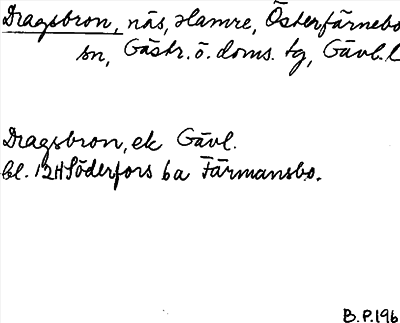 Dragsbron, näs, Hamre, Österfärnebo
sn, Gästr. ö. doms. tg, Gävl. l
Dragsbron, ek Gävl.
bl. 12H Söderfors 6a Färmansbo.
B.P.196